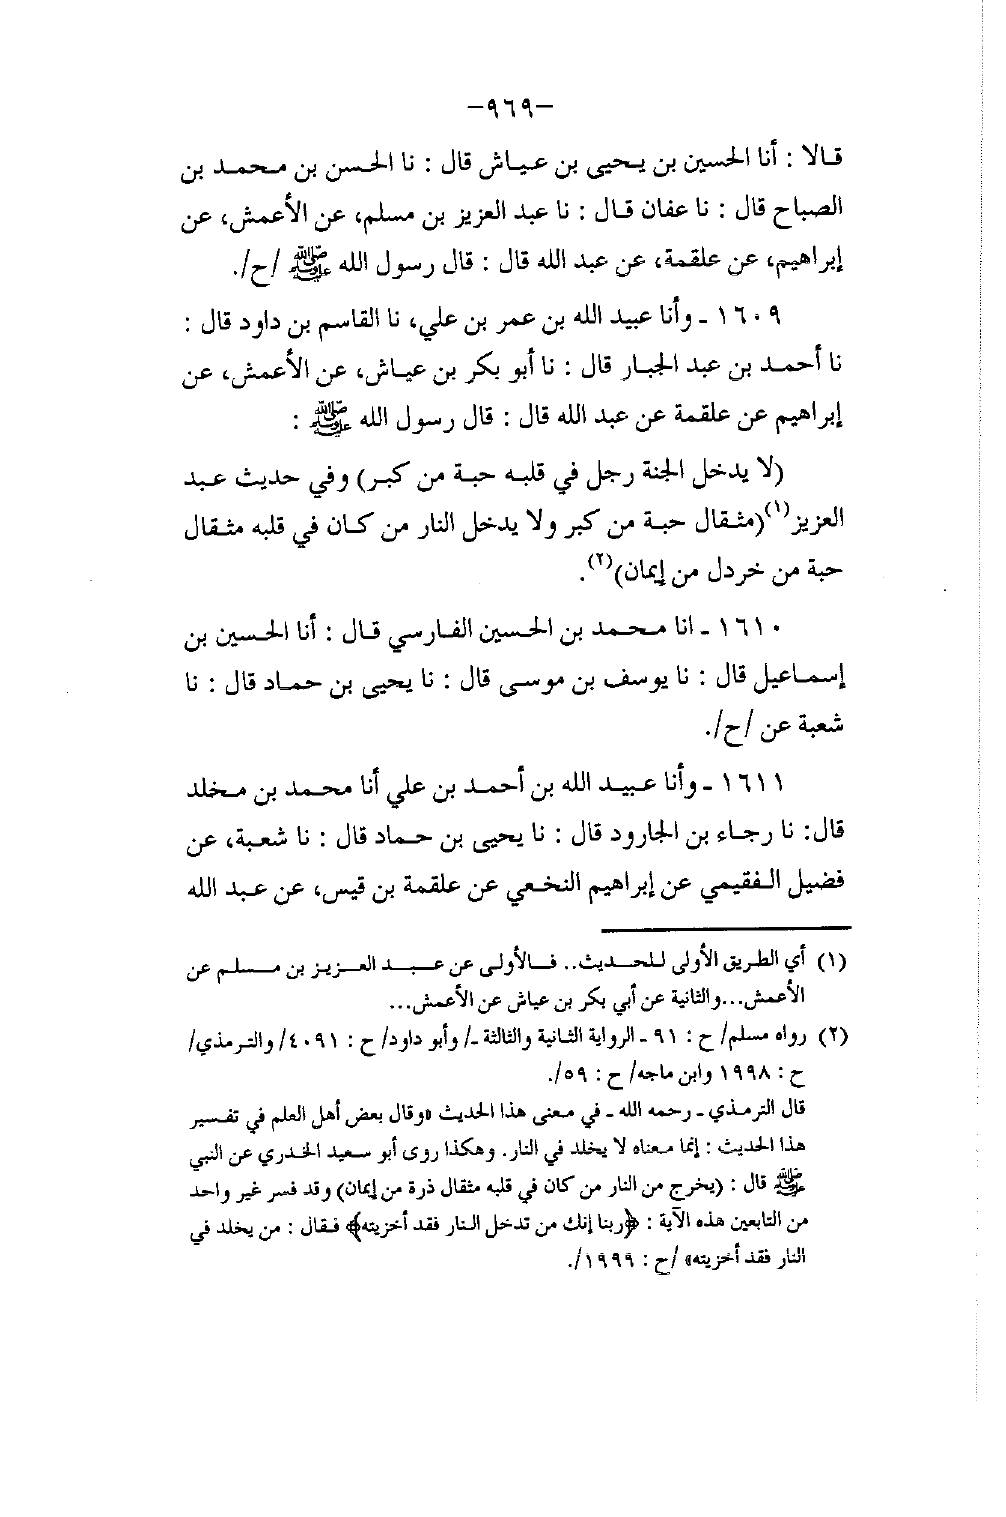 -٩٦٩-
قالا : أنا الحسين بن يحيى بن عياش قال : نا الحسن بن محمد بن
الصباح قال : نا عفان قال : نا عبد العزيز بن مسلم، عن الأعمش، عن
إبراهيم، عن علقمة، عن عبد الله قال : قال رسول الله ﷺ /ح/.
١٦٠٩ - وأنا عبيد الله بن عمر بن علي، نا القاسم بن داود قال :
نا أحمد بن عبد الجبار قال : نا أبو بكر بن عياش، عن الأعمش، عن
إبراهيم عن علقمة عن عبد الله قال : قال رسول الله ﷺ :
(لا يدخل الجنة رجل في قلبه حبة من كبر) وفي حديث عبد
العزيز(١)(مثقال حبة من كبر ولا يدخل النار من كان في قلبه مثقال
حبة من خردل من إيمان)(٢).
١٦١٠ - انا محمد بن الحسين الفارسي قال : أنا الحسين بن
إسماعيل قال : نا يوسف بن موسى قال : نا يحيى بن حماد قال : نا
شعبة عن /ح/.
١٦١١ - وأنا عبيد الله بن أحمد بن علي أنا محمد بن مخلد
قال: نا رجاء بن الجارود قال : نا يحيى بن حماد قال : نا شعبة، عن
فضيل الفقيمي عن إبراهيم النخعي عن علقمة بن قيس، عن عبد الله
(١) أي الطريق الأولى للحديث.. فالأولى عن عبد العزيز بن مسلم عن
الأعمش...والثانية عن أبي بكر بن عياش عن الأعمش...
(٢) رواه مسلم/ ح : ٩١ - الرواية الثانية والثالثة -/ وأبو داود/ ح : ٤٠٩١/ والترمذي/
ح : ١٩٩٨ وابن ماجه/ ح : ٥٩/.
قال الترمذي - رحمه الله - في معنى هذا الحديث «وقال بعض أهل العلم في تفسير
هذا الحديث : إنما معناه لا يخلد في النار. وهكذا روى أبو سعيد الخدري عن النبي
ﷺ قال : (يخرج من النار من كان في قلبه مثقال ذرة من إيمان) وقد فسر غير واحد
من التابعين هذه الآية : ﴿ربنا إنك من تدخل النار فقد أخزيته﴾ فقال : من يخلد في
النار فقد أخزيته» /ح : ١٩٩٩/.